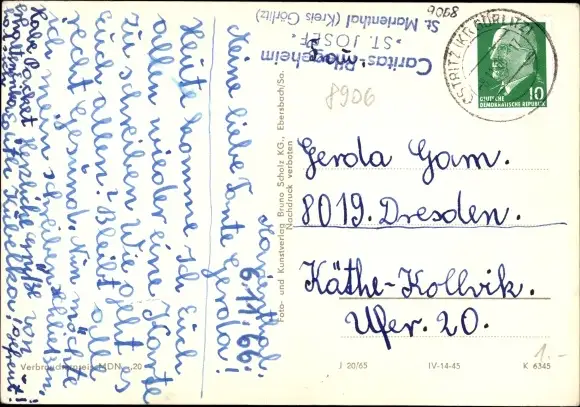 Marienthal,
6.11.66.
Meine liebe Tante Gerda!
Heute komme ich Euch
allen wieder eine Karte
zu schreiben. Wie geht es
Euch allen? Bleibt alle
recht Gesund. Nun möchte
ich mein schreiben schließen,
Habe Packet
Herzliche Grüße von
erhalten
CARITAS-Pflegeheim
"ST. JOSEF"
St. Marienthal (Kreis Görlitz)
8906
8906
OSTRITZ (KR GÖRLITZ)
10
DEUTSCHE
DEMOKRATISCHE REPUBLIK
Gerda Gam.
8019. Dresden.
Käthe-Kollvik.
Ufer. 20.
Foto- und Kunstverlag Bruno Scholz KG., Ebersbach/Sa.
Nachdruck verboten
Verbraucherpreis MDN -,20
J 20/65
IV-14-45
K 6345
1.-